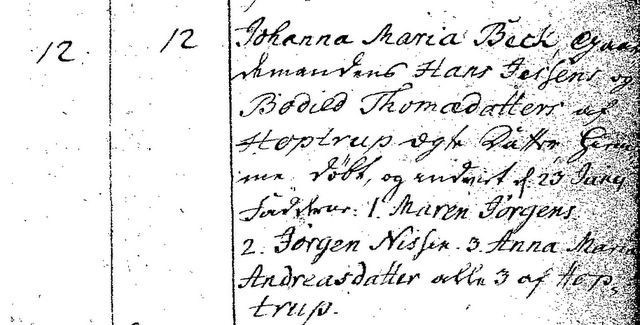 12 12 Johanna Maria Beck, Gaar
demandens Hans Jessens og
Bodild Thomædatters af
Hoptrup ægte Datter
me døbt, og indført d. 23 Janu
Faddere: 1. Maren Jørgens
2. Jørgen Nissen. 3. Anna Maria
Andreasdatter alle 3 af Hop-
trup.